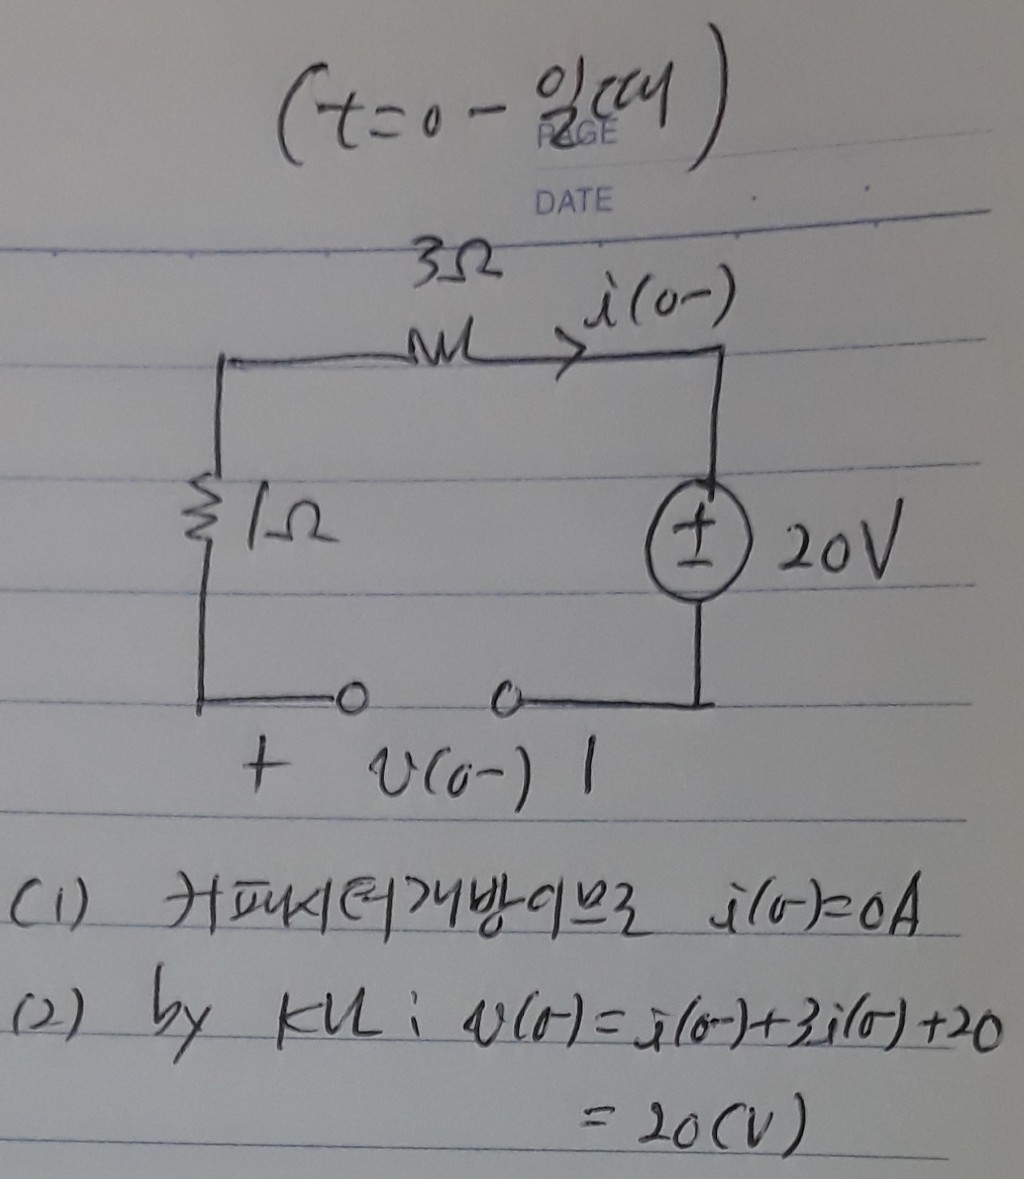 (t=0- 일 때)
PAGE
DATE
3Ω
i(0-)
1Ω
+
-
20V
+ v(0-) |
(1) 커패시터 개방이므로 i(0-)=0A
(2) by KVL : v(0-)=i(0-)+3i(0-)+20
= 20(V)